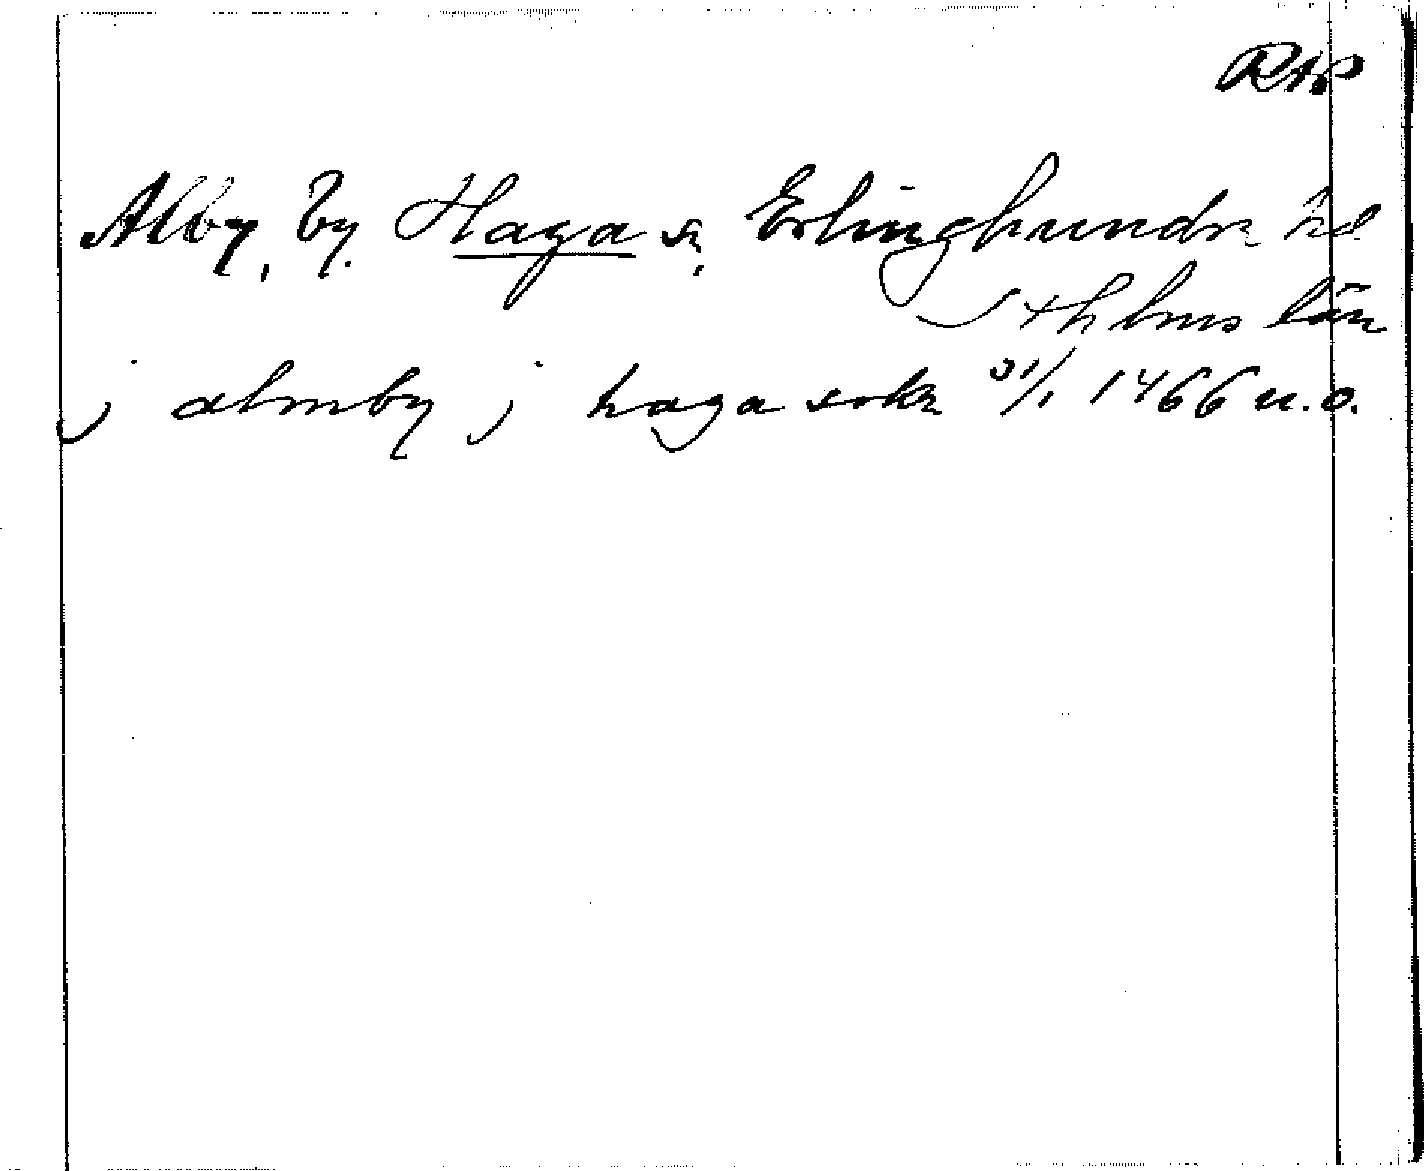 RAP
Alby, by. Haga sn, Erlinghundra hd
Sthlms län
j almby j haga sokn 31/1 1466 u.o.